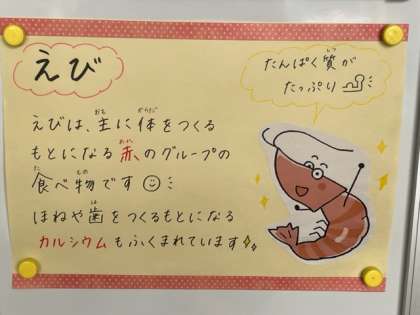 えび
たんぱく質が
たっぷり
えびは、主に体をつくる
もとになる赤のグループの
食べ物です
ほねや歯をつくるもとになる
カルシウムもふくまれています